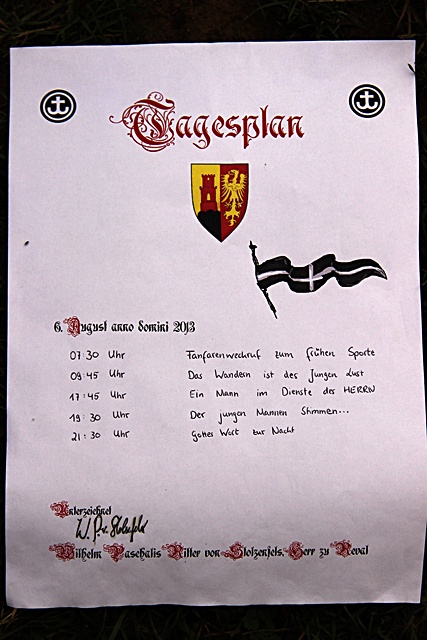 Tagesplan
6. August anno domini 2013
07:30 Uhr Fanfarenweckruf zum frühen Sporte
09:45 Uhr Das Wandern ist der Jungen Lust
17:45 Uhr Ein Mann im Dienste des HERRN
19:30 Uhr Der jungen Mannen Stimmen...
21:30 Uhr Gottes Wort zur Nacht
Unterzeichnet
Wilhelm Paschalis Ritter von Stolzenfels, Herr zu Reval